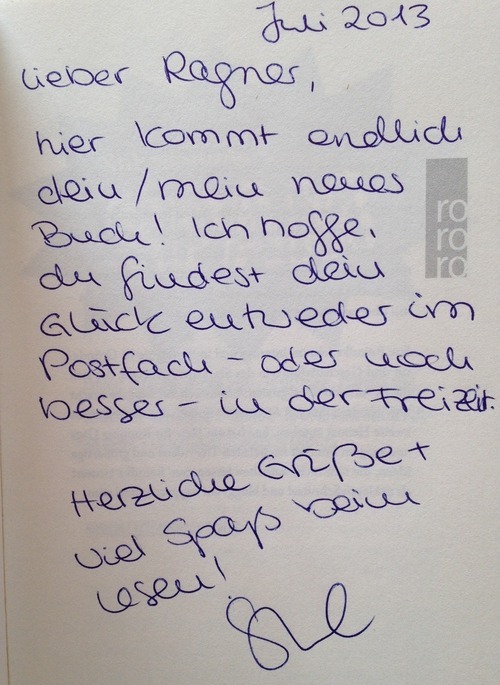 Juli 2013
Lieber Ragner,
hier kommt endlich
dein/mein neues
Buch! Ich hoffe,
du findest dein
Glück entweder im
Postfach - oder noch
besser - in der Freizeit.
Herzliche Grüße +
viel Spaß beim
Lesen!
ro
ro
ro